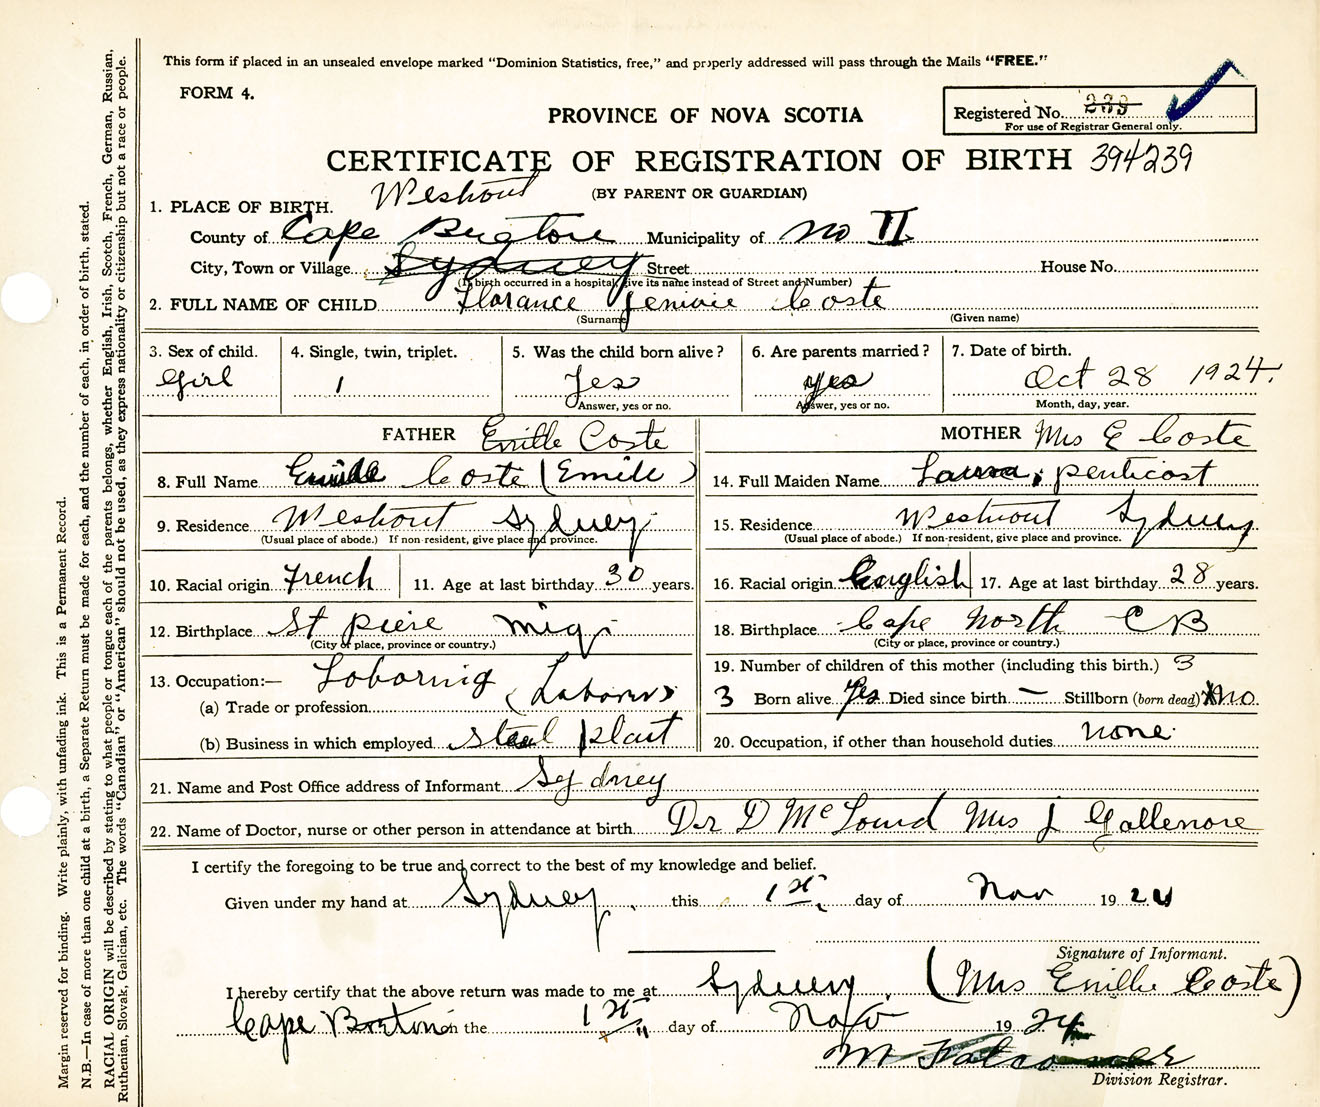 This form if placed in an unsealed envelope marked "Dominion Statistics, free," and properly addressed will pass through the Mails "FREE."
FORM 4.
PROVINCE OF NOVA SCOTIA
Registered No. 239
For use of Registrar General only.
CERTIFICATE OF REGISTRATION OF BIRTH 394239
(BY PARENT OR GUARDIAN)
Westmout
1. PLACE OF BIRTH.
County of Cape Bretone Municipality of No II
City, Town or Village Sydney Street House No.
(If birth occurred in a hospital, give its name instead of Street and Number)
2. FULL NAME OF CHILD Florance Jenivie Coste
(Surname) (Given name)
3. Sex of child. 4. Single, twin, triplet. 5. Was the child born alive? 6. Are parents married? 7. Date of birth.
Girl 1 Yes yes Oct 28 1924.
Answer, yes or no. Answer, yes or no. Month, day, year.
FATHER Emille Coste MOTHER Mrs E Coste
8. Full Name Emile Coste (Emile) 14. Full Maiden Name Laura penticost
9. Residence Westmout Sydney 15. Residence Westmout Sydney
(Usual place of abode.) If non-resident, give place and province. (Usual place of abode.) If non-resident, give place and province.
10. Racial origin French 11. Age at last birthday 30 years. 16. Racial origin English 17. Age at last birthday 28 years.
12. Birthplace St piere Miq. 18. Birthplace Cape North CB
(City or place, province or country.) (City or place, province or country.)
13. Occupation:— Lobornig (Laborer) 19. Number of children of this mother (including this birth.) 3
(a) Trade or profession 3 Born alive Yes Died since birth — Stillborn (born dead) No
(b) Business in which employed steel plant 20. Occupation, if other than household duties none
21. Name and Post Office address of Informant Sydney
22. Name of Doctor, nurse or other person in attendance at birth Dr D McLourd Mrs J Gallenore
I certify the foregoing to be true and correct to the best of my knowledge and belief.
Given under my hand at Sydney this 1st day of Nov 1924
Signature of Informant.
I hereby certify that the above return was made to me at Sydney. (Mrs Emille Coste)
Cape Breton on the 1st day of Nov 1924
M Falconer
Division Registrar.
Margin reserved for binding. Write plainly, with unfading ink. This is a Permanent Record.
N.B.—In case of more than one child at a birth, a Separate Return must be made for each, and the number of each, in order of birth, stated.
RACIAL ORIGIN will be described by stating to what people or tongue each of the parents belongs, whether English, Irish, Scotch, French, German, Russian,
Ruthenian, Slovak, Galician, etc. The words "Canadian" or "American" should not be used, as they express nationality or citizenship but not a race or people.